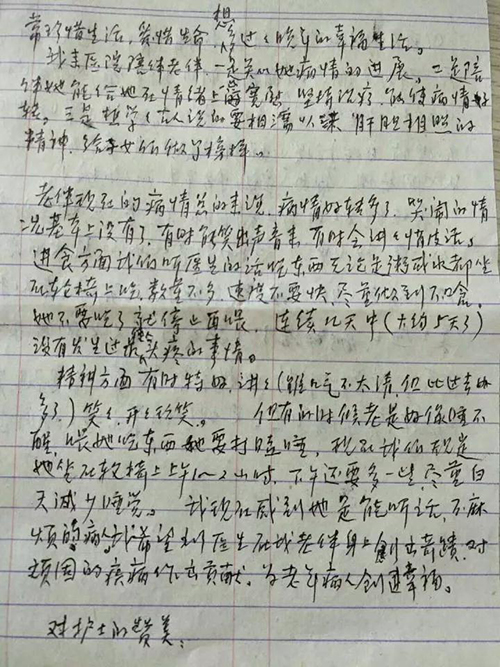 常珍惜生活,爱惜生命,想过过晚年的幸福生活。
我来医院陪伴老伴,一是关心她病情的进展。二是陪
伴她能给她在情绪上有宽慰,坚持治疗,能使病情好
转。三是想学学古人说的要相濡以沫,肝胆相照的
精神,给子女们做个榜样。
老伴现在的病情总的来说,病情好转多了,哭闹的情
况基本上没有了,有时能笑出声音来,有时会讲讲生活。
进食方面我们听医生的话吃东西无论是稀或水都坐
在软椅上吃,数量不多,速度不要快,尽量做到不呛。
她不要吃了就停止再喂,连续几天中(大约5天)
没有发生过头疼的事情。
精神方面有时特好,讲讲(虽口气不大清,但比过去好
多了)笑笑,开开玩笑。但有的时候老是好像睡不
醒,喂她吃东西她要打瞌睡,现在我们规定
她坐在软椅上上午1~2小时,下午还要多一些,尽量白
天减少睡觉。我现在感到她是能听话,不麻
烦的病人。我希望刘医生在我老伴身上创出奇迹,对
顽固的疾病作出贡献,为老年病人创造幸福。
对护士的赞美: